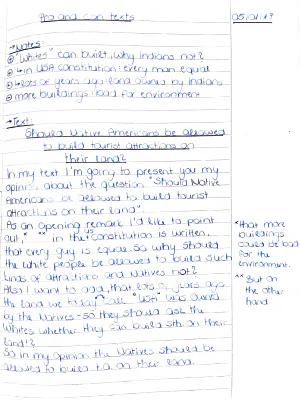 Pro and con texts
05/01/17
→ Notes
⊕ "Whites" can built, why Indians not?
⊕ in USA constitution: every man equal
⊕ lots of years ago: land owned by Indians
⊖ more buildings: bad for environment
→ Text:
Should Native Americans be allowed
to build tourist attractions on
their land?
In my text I'm going to present you my
opinion about the question "Should Native
Americans be allowed to build tourist
attractions on their land".
As an opening remark I'd like to point
out,* ** in the US constitution is written,
that every guy is equal. So why should
the white people be allowed to build such
kinds of attractions and Natives not?
Also I want to add, that lots of years ago
the land we today call "USA" was owned
by the Natives - so they should ask the
Whites whether they can build sth on their
land!?
So in my opinion the Natives should be
allowed to build t.a. on their land.
*that more
buildings
could be bad
for the
environment.
** But on
the other
hand